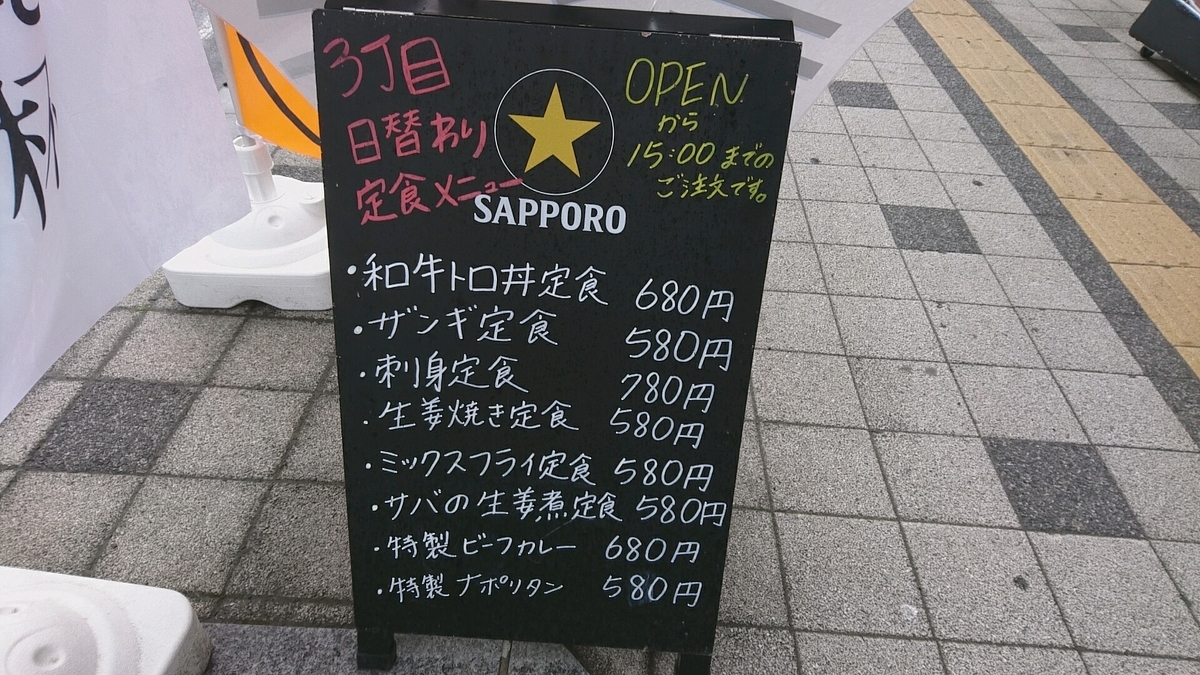 3丁目
日替わり
定食メニュー
SAPPORO
OPEN
から
15:00までの
ご注文です。
・和牛トロ丼定食 680円
・ザンギ定食 580円
・刺身定食 780円
・生姜焼き定食 580円
・ミックスフライ定食 580円
・サバの生姜煮定食 580円
・特製ビーフカレー 680円
・特製ナポリタン 580円